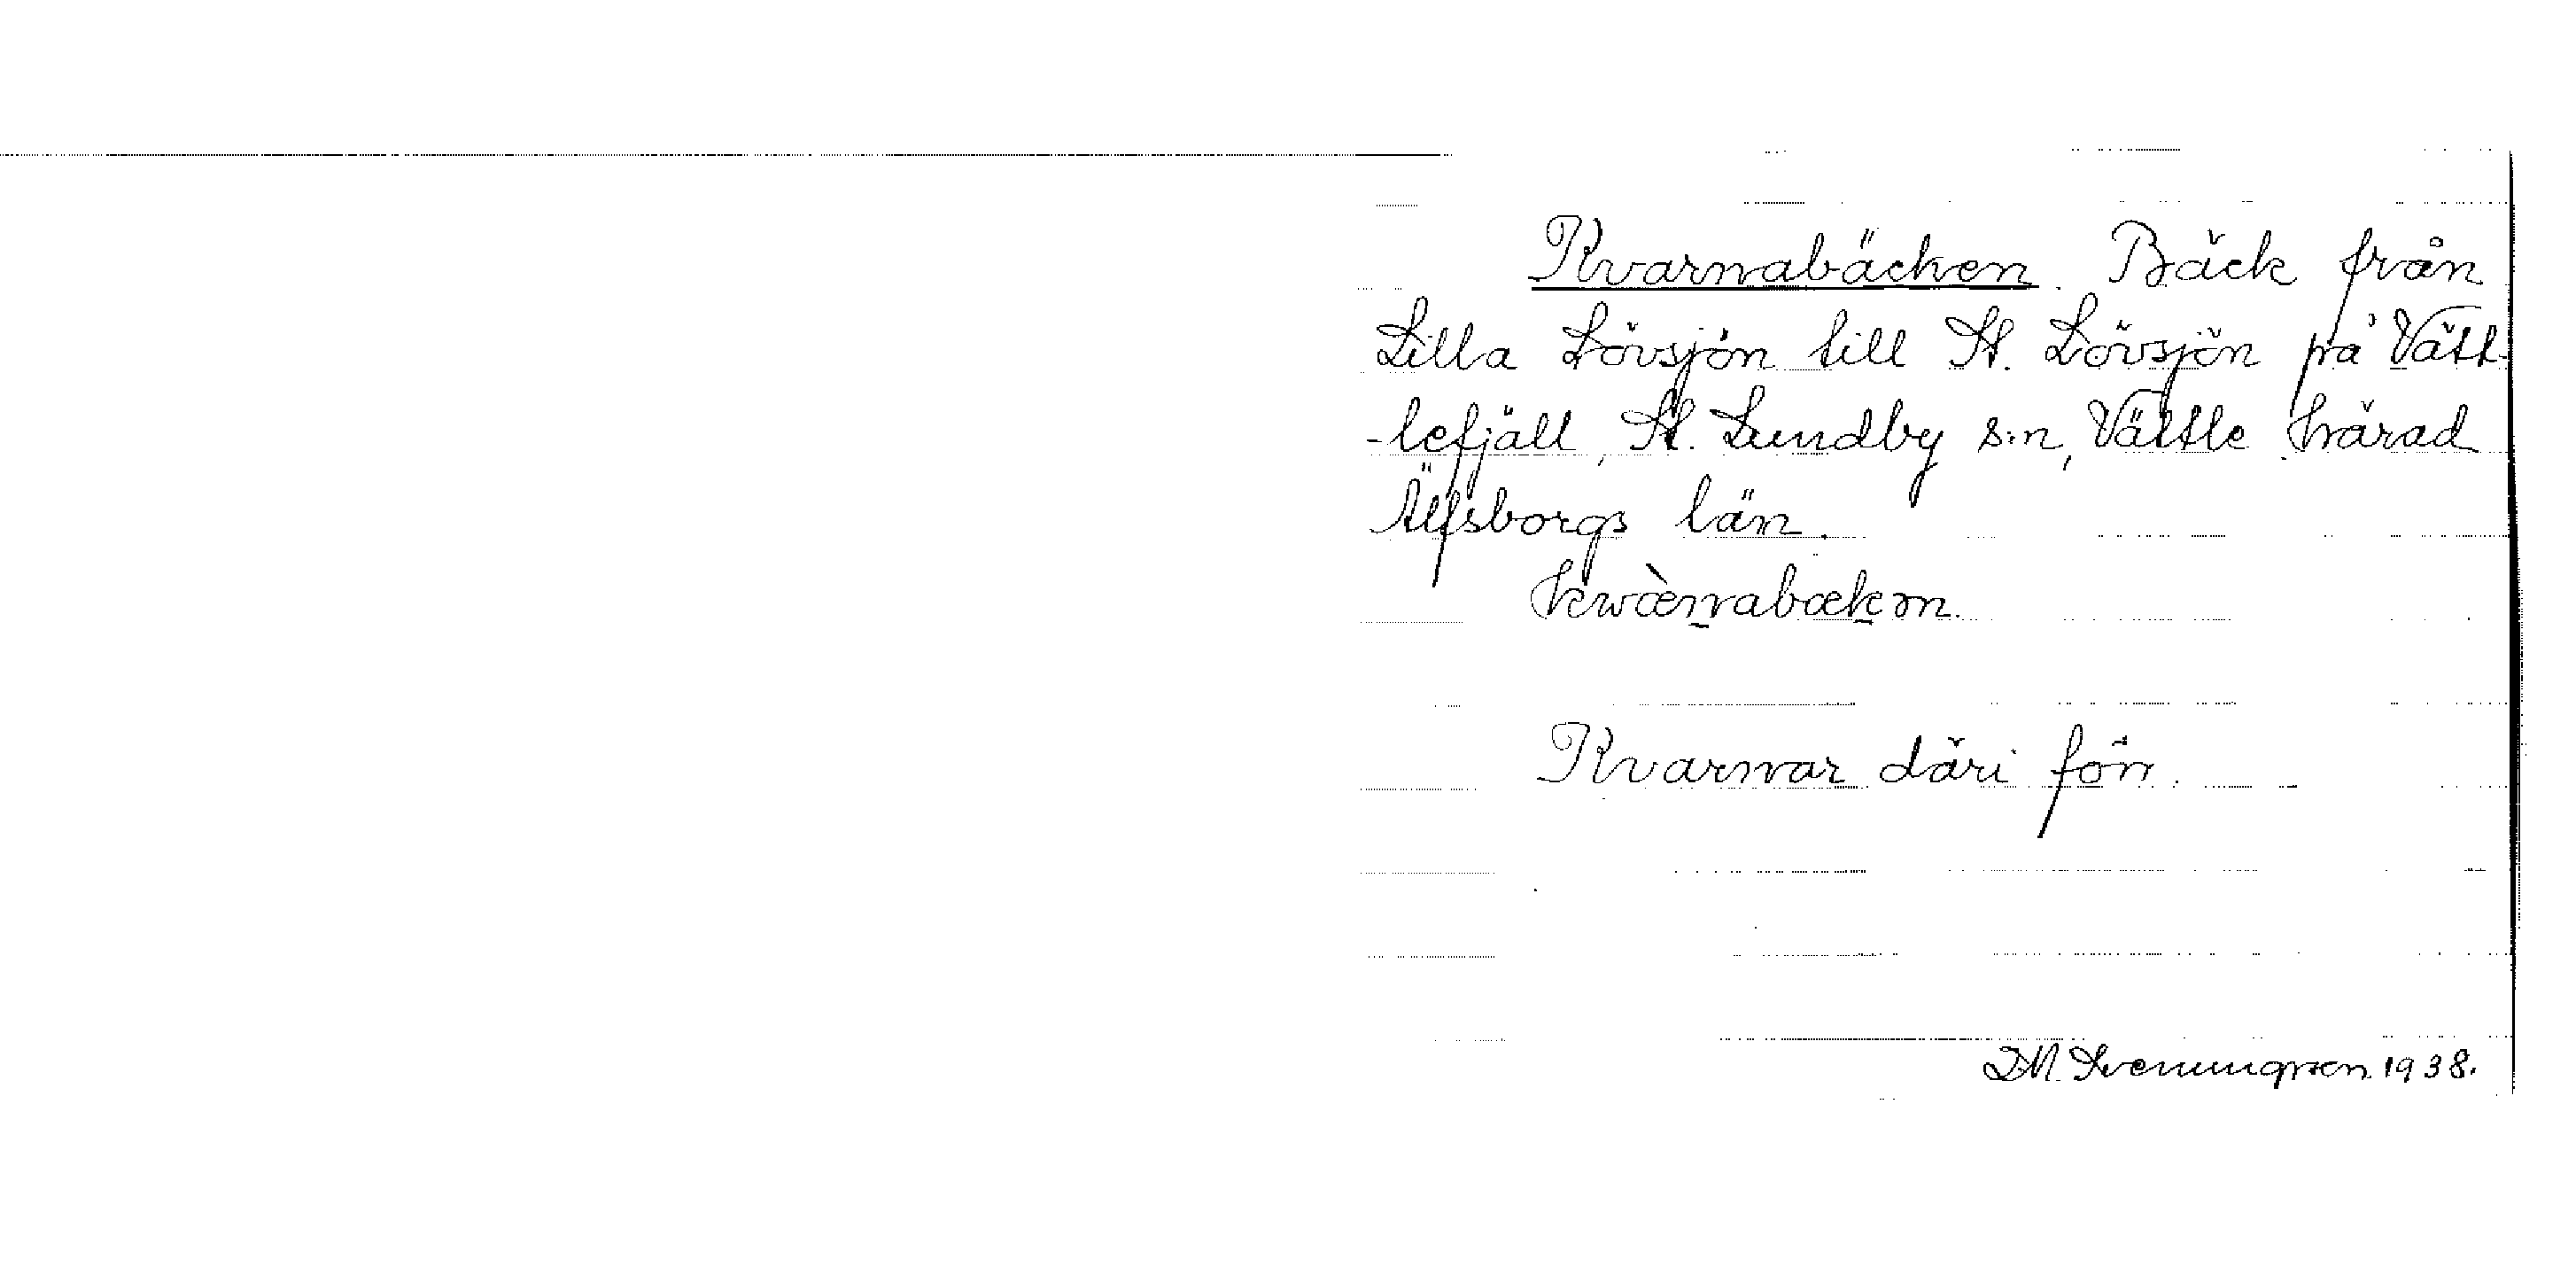 Kvarnabäcken. Bäck från
Lilla Lövsjön till St. Lövsjön på Vätt-
-lefjäll, St. Lundby s:n, Vättle härad
Älfsborgs län.
kwæ̀rnabækən.
Kvarnar däri förr.
D.M. Svenungsson 1938.